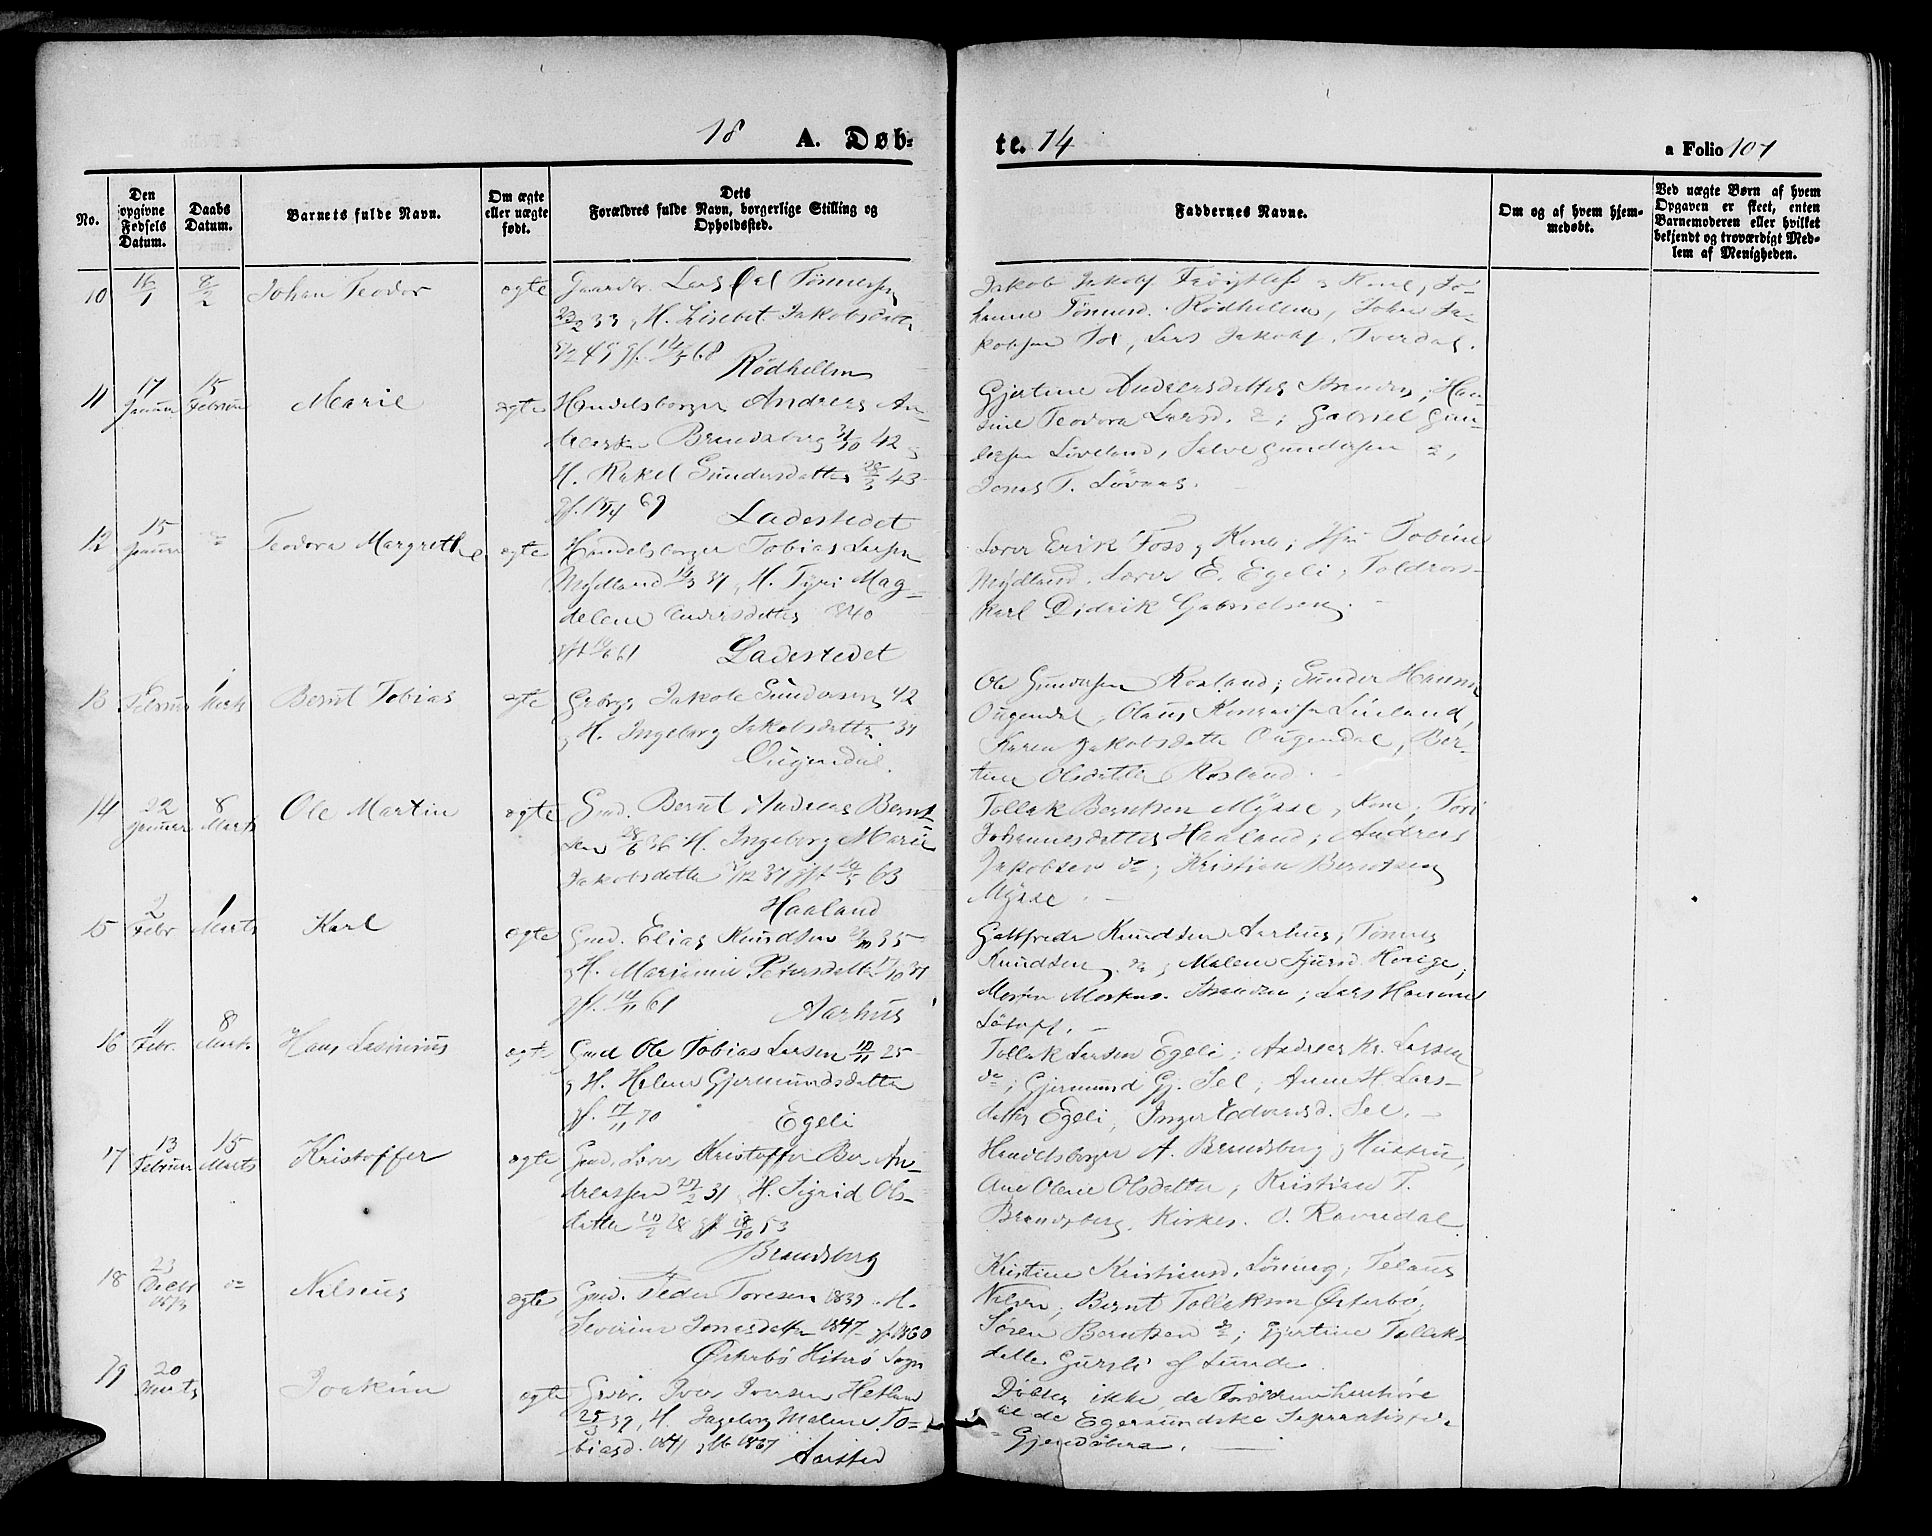 18 A. Døb-
te. 74
a Folio 107
No.
Den opgivne Fødsels Datum.
Daabs Datum.
Barnets fulde Navn.
Om ægte eller uægte født.
Dets Forældres fulde Navn, borgerlige Stilling og Opholdssted.
Faddernes Navne.
Om og af hvem hjemmedøbt.
Ved uægte Børn af hvem Opgaven er skeet, enten Barnemoderen eller hvilket bekjendt og troværdigt Medlem af Menigheden.
10 16/1 8/2 Johan Teodor ægte Gaardbr. Lars Tønnessen
33, H. Lisebet Jakobsdatter
49 gf. 68
Rødhellen
Jakob Jakobs. & Kone, Jo-
hanne Tønnesd. Rødhellen, Johan Ja-
kobsen, Lars Jakobs. Tverdal.
11 17 Januar 15 Februar Marie ægte Handelsborger Andreas An-
dreassen Brandsberg 31/10 42 &
H. Rakel Gundersdatter 43
gf. 15/4 69 Ladestedet
Gjertine Andreasdatter Stranden, Han-
sine Teodora Larsd. ; Gabriel Gun-
dersen Liveland, Salve Gundersen
Jonas T. Løvaas.
12 15 Januar Teodora Margrethe ægte Handelsborger Tobias Larsen
Mydland 37, H. Tyri Mag-
delene Andersdatter 40
gft 61 Ladestedet
Lærer Erik Foss & Kone; Tobine
Mydland, Lærer E. Egeli; Toldrors-
karl Didrik Gabrielsen.
13 Februar 1 Marts Bernt Tobias ægte Jakob Gundersen 42
& H. Ingeborg Jakobsdatter 37
Ougendal.
Ole Gundersen Rosland; Gunder Hansen
Ougendal; Olaus
Karen Jakobsdatter Ougendal, Ber-
tine Olsdatter Rosland.
14 22 Januar 8 Marts Ole Martin ægte Gmd. Bernt Andreas Bernt-
sen 28/6 36 H. Ingeborg Marie
Jakobsdatter 37 gft 63
Haaland
Tollak Berntsen Mysse, Kone; Tori
Johannesdatter Haaland; Andreas
Jakobsen do; Kristian Berntsen
Mysse.
15 2 Febr 1 Marts Karl ægte Gmd. Elias Knudsen 35
& H. Marianne Petersdatter 37
gf. 61 Aarhus
Gottfrede Knudsen Aarhus, Tønnes
Knudsen do; Malene Sjursd.
Stranden; Lars
16 11 Febr. 8 Marts Hans Lasinius ægte Gmd Ole Tobias Larsen 10/11 25
& H. Helene Gjermundsdatter
gf. 17/11 70 Egeli
Tollak Larsen Egeli; Andreas Kr. Larsen
do; Gjermund Gj. Sel; Anne H. Lars-
datter Egeli, Inger Edvardsd. Sel.
17 13 Februar 15 Marts Kristoffer ægte Gmd. Lærer Kristoffer An-
dreassen 27/2 31, H. Sigrid Ols-
datter 28 gf 18/10 53
Brandsberg
Handelsborger A. Brandsberg & Hustru,
Ane Olene Olsdatter, Kristian T.
Brandsberg, Kirkes. O. Ravndal
18 23 Decbr 1873 do Nilsius ægte Gmd. Peder Toresen 1839, H.
Severine Jonasdatter 1847 gf. 1860
Østebø Hiterø Sogn
Kristine Kristiansd. Løning;
Nilsen; Bernt Tollaksen Østerbø,
Søren Berntsen do; Gjertine Tollaks-
datter Gursli af Lunde.
19 20 Marts Joakim ægte Gbr. Iver Iversen Hetland
25/5 39, H. Ingeborg Malene To-
biasd. 1841 1867
Aarstad
Døbes ikke, da Forældrene henhøre
til de Egersundske Separatister.
Gjendøbere.